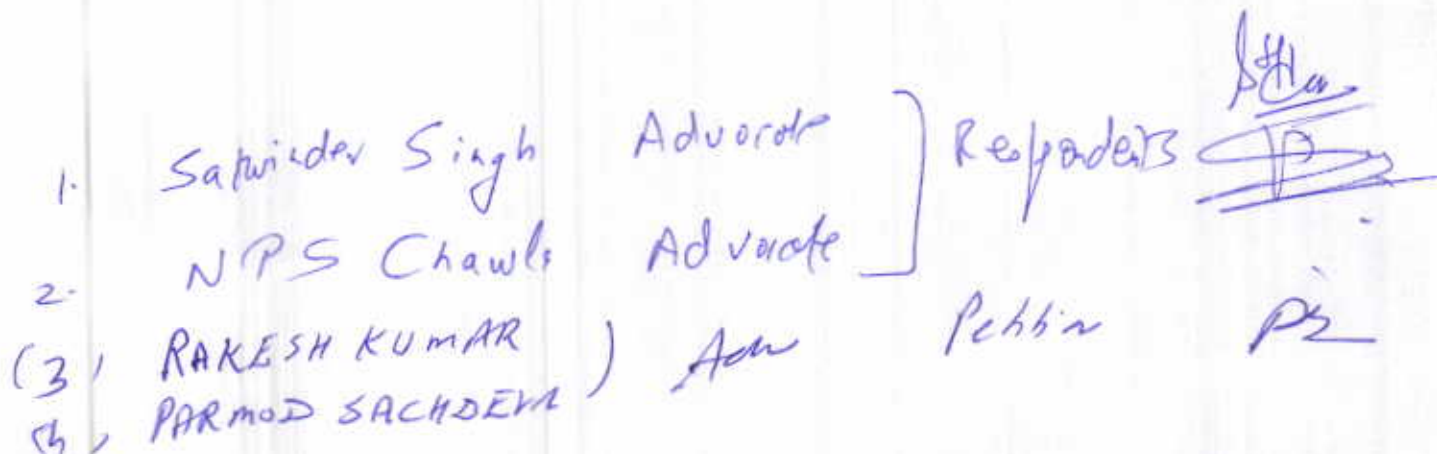 1. Satwinder Singh Advocate Respondents
2. NPS Chawla Advocate
(3) RAKESH KUMAR Adv
PARMOD SACHDEVA